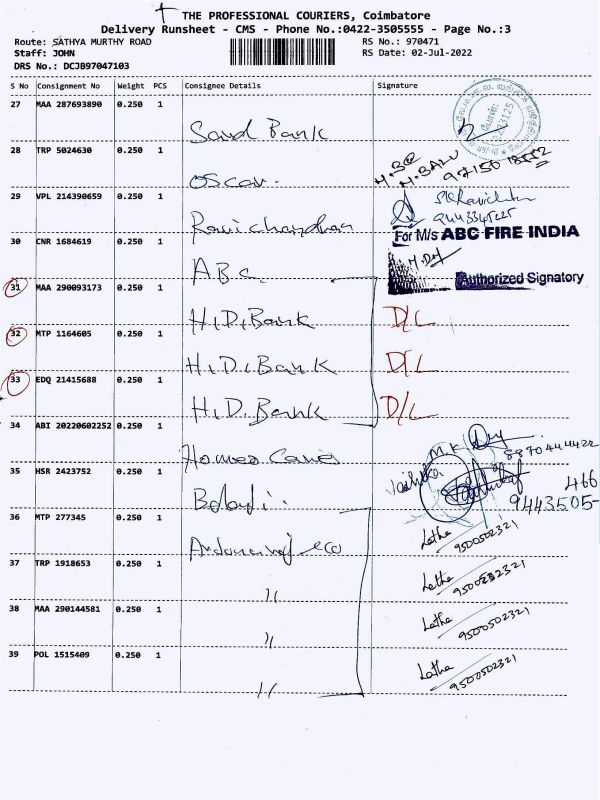 THE PROFESSIONAL COURIERS, Coimbatore
Delivery Runsheet - CMS - Phone No.:0422-3505555 - Page No.:3
Route: SATHYA MURTHY ROAD RS No.: 970471
Staff: JOHN RS Date: 02-Jul-2022
DRS No.: DCJB97047103
S No Consignment No Weight PCS Consignee Details Signature
27 MAA 287693890 0.250 1
Bank
28 TRP 5024630 0.250 1
M. BALU
Oscar
29 VPL 214390659 0.250 1
9443345225
Ravichandran
For M/s ABC FIRE INDIA
30 CNR 1684619 0.250 1
ABC
Authorized Signatory
31 MAA 290093173 0.250 1
H.D. Bank D/L
32 MTP 1164605 0.250 1
H.D. Bank D/L
33 EDQ 21415688 0.250 1
H.D. Bank D/L
34 ABI 20220602252 0.250 1
M.K
8870444422
35 HSR 2423752 0.250 1
466
9443505-
Balaji
36 MTP 277345 0.250 1
Latha
9500502321
37 TRP 1918653 0.250 1
Latha
〃
38 MAA 290144581 0.250 1
Latha
9500502321
〃
39 POL 1515409 0.250 1
Latha
9500502321
〃